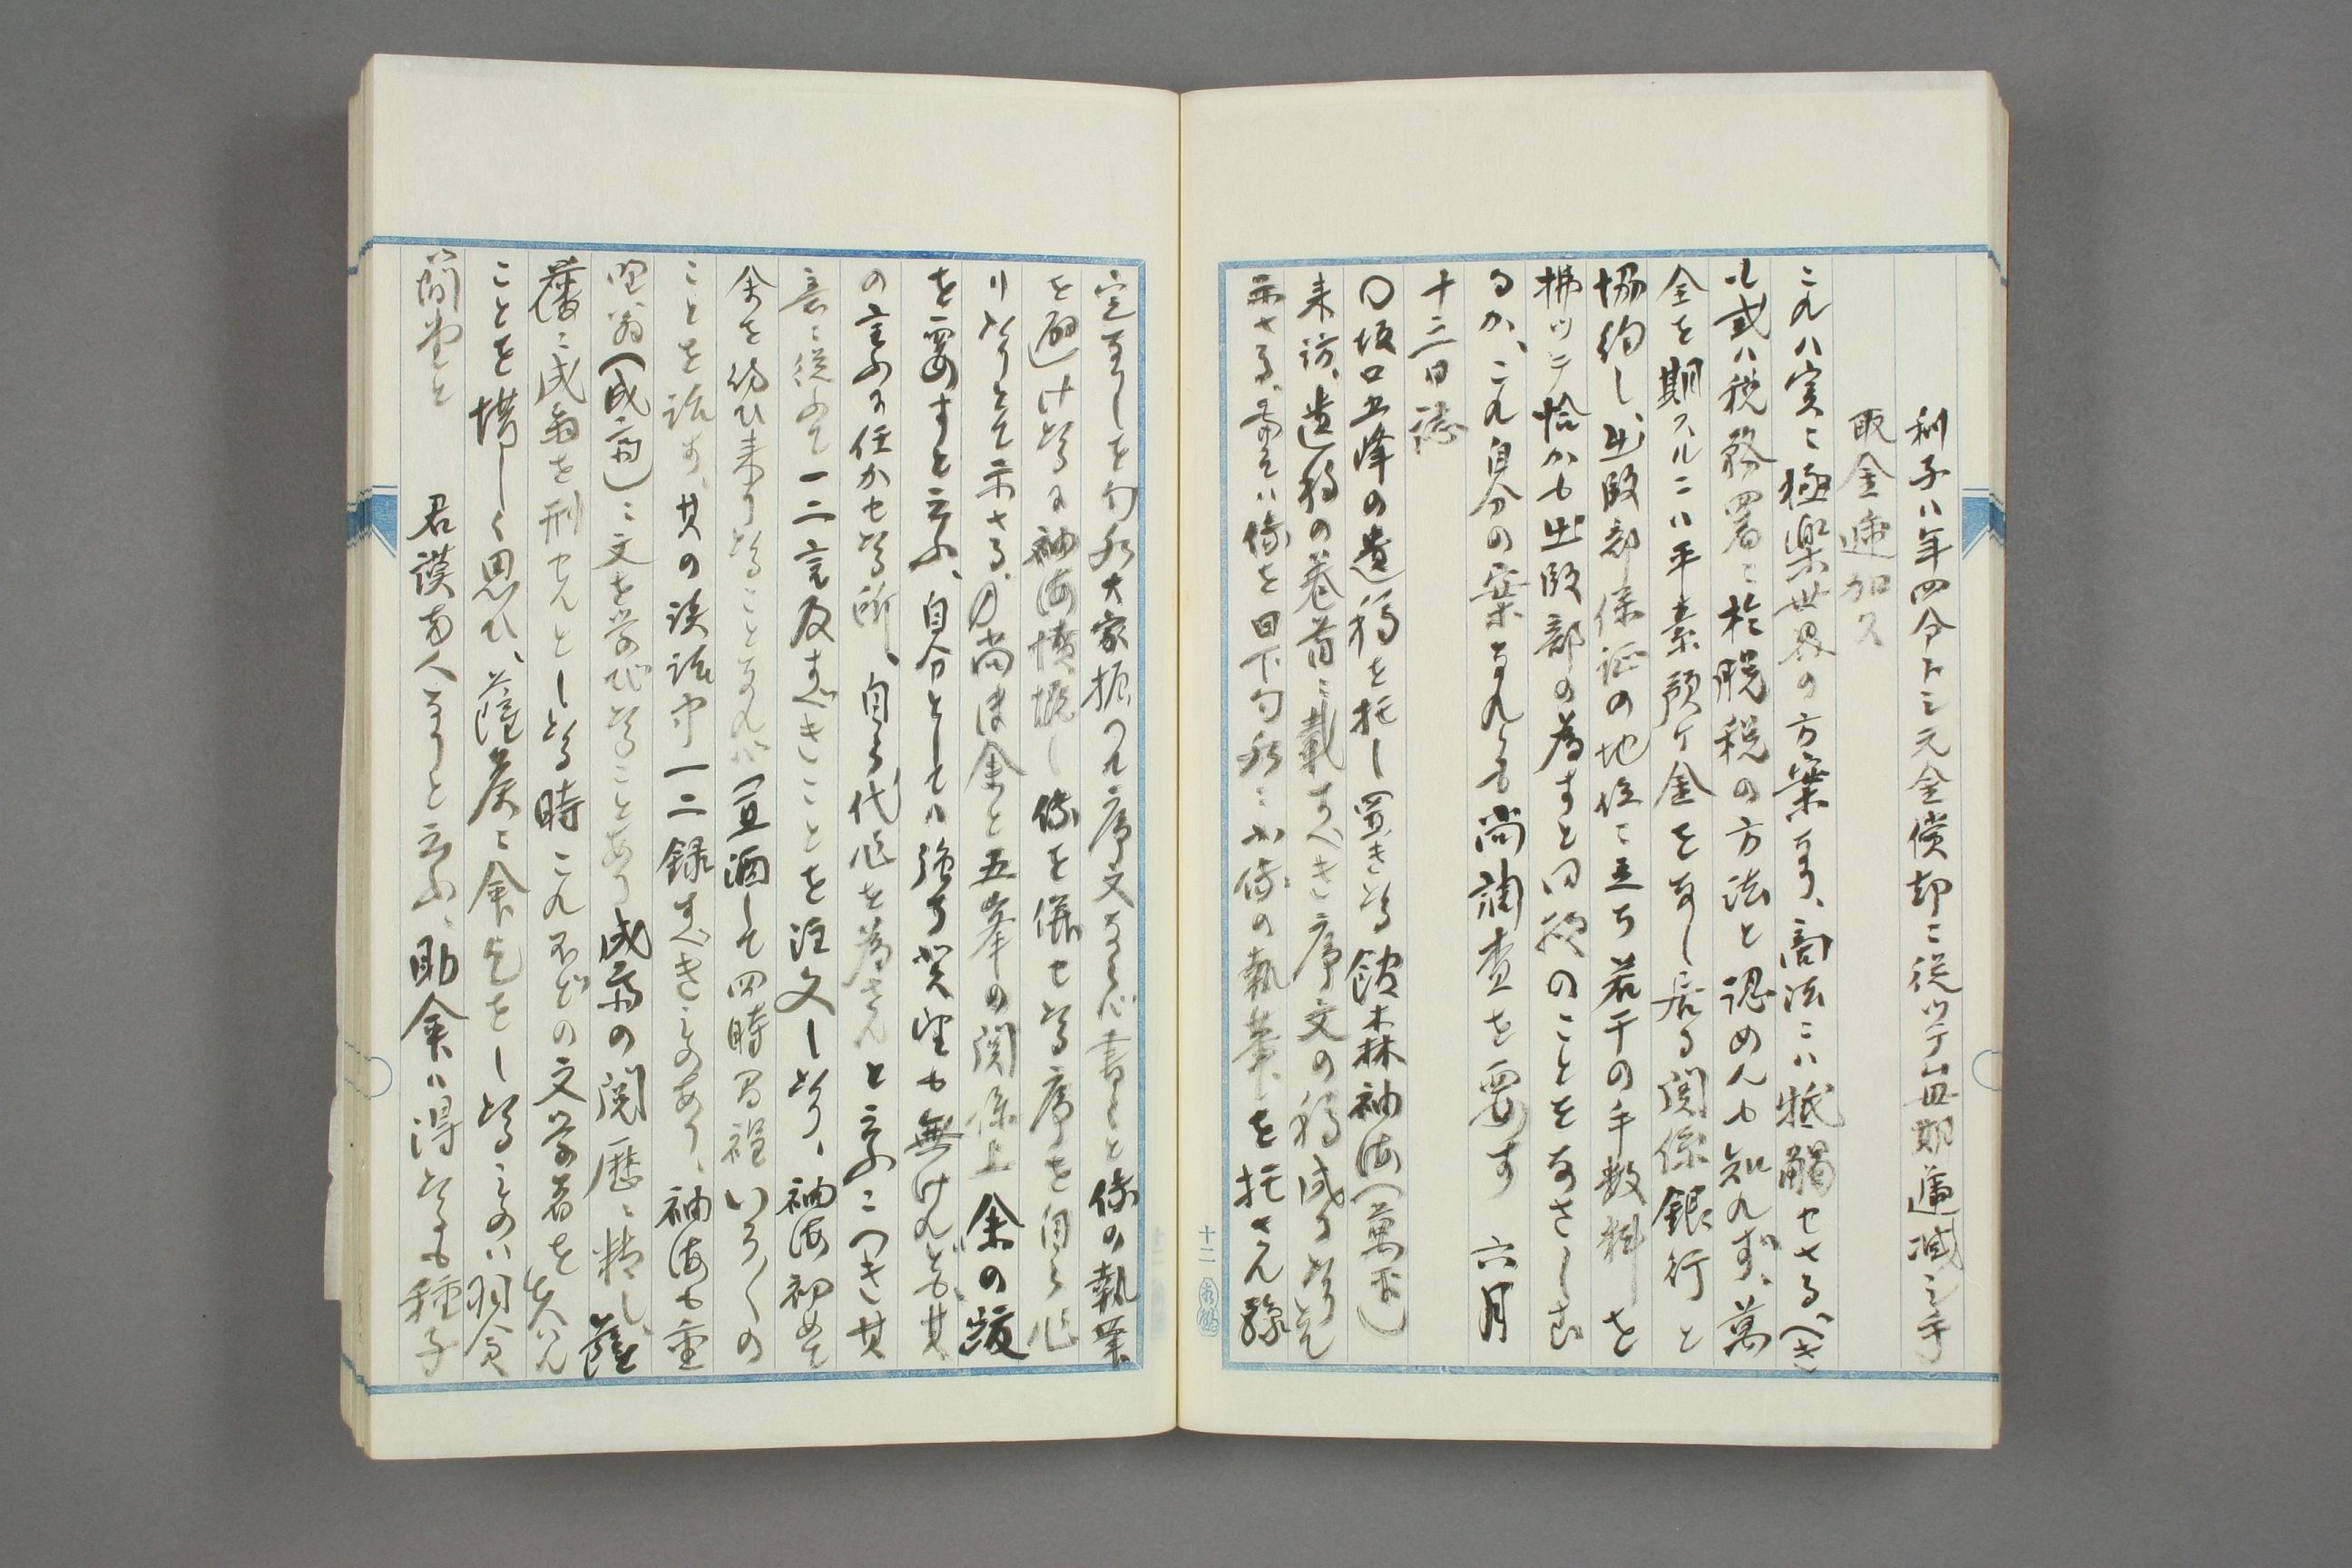 利子ハ年四分トシ元金償却ニ従ツテ毎期逓減シ手
取金逓加ス
これハ実ニ極楽世界の方案なり、商法ニハ牴觸せさるへき
も或ハ税務署ニ於脱税の方法と認めんも知れず、萬
全を期スルニハ平素預ケ金をなし居る関係銀行と
協約し、出版部保証の地位ニ立ち若干の手数料を
拂ツテ恰かも出版部の為すと同様のことをなさしむ
るか、これ自分の案なれとも尚調査を要す 六月
十二日誌
〇坂口五峰の遺稿を托し置きたる館森袖海(萬平)
来訪、遺稿の巻首ニ載すべき序文の稿成りたりとて
示さる、
を托さん
定なりしを
大家振つた序文ならば書くと
の執筆
を避けたるに袖海憤慨し
を併せたる序を自ら作
りたりとて示さる、尚ほ余と五峯の関係上余の跋
を要すと云ふ、自分としてハ強ち其望も無けれども、其
の言ふに任かせたる所、自ら代作を為さんと云ふニつき其
意ニ従ふて一二言及すべきことを注文したり、袖海初めて
余を訪ひ来りたることなれバ(置酒して四時間程いろくの
ことを話す、其の談話中一二録すべきものあり、袖海も重
野翁(成斎)ニ文を学びたることあり成斎の閲歴ニ精し、薩
藩ニ成翁を刑せんとしたる時これほどの文学者を失はん
ことを惜しく思ひ、薩侯ニ命乞をしたるものハ羽倉
簡堂と 君謨両人なりと云ふ、助命ハ得たるも種子
十二